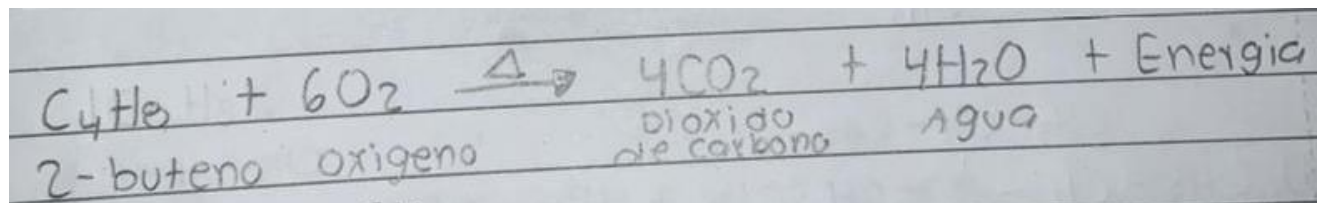 C₄H₈ + 6O₂ Δ→ 4CO₂ + 4H₂O + Energia
2-buteno oxigeno Dioxido de carbono Agua